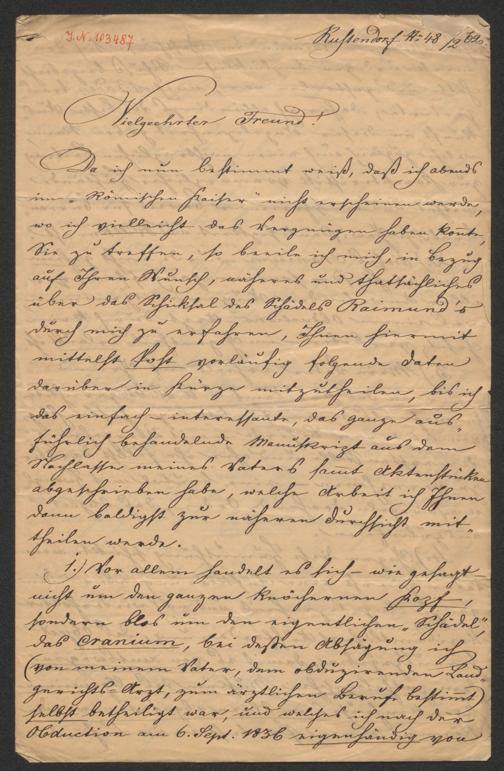 J.N. 103487
Rustendorf N: 48 /2
Vielgeehrter Freund!
Da ich nun bestimmt weiß, daß ich abends
im „Römischen Kaiser" nicht erscheinen werde,
wo ich vielleicht das Vergnügen haben konnte,
Sie zu treffen, so beeile ich mich, in Bezug
auf Ihren Wunsch, näheres und thatsächliches
über das Schicksal des Schädels Raimund's
durch mich zu erfahren, Ihnen hiermit
mittelst Post vorläufig folgende Daten
darüber in Kürze mitzutheilen, bis ich
das einfach-interessante, das ganze aus-
führlich behandelnde Manuskript aus dem
Nachlasse meines Vaters samt Aktenstücken
abgeschrieben habe, welche Arbeit ich Ihnen
dann baldigst zur näheren Durchsicht mit-
theilen werde.
1.) Vor allem handelt es sich – wie gesagt –
nicht um den ganzen knöchernen Kopf,
sondern blos um den eigentlichen „Schädel",
das Cranium, bei deßen Absägung ich
(von meinem Vater, dem obduzirenden Land-
gerichts-Arzt, zum ärztlichen Berufe bestimmt)
selbst betheiligt war, und welches ich nach der
Obduction am 6. Sept. 1836 eigenhändig von